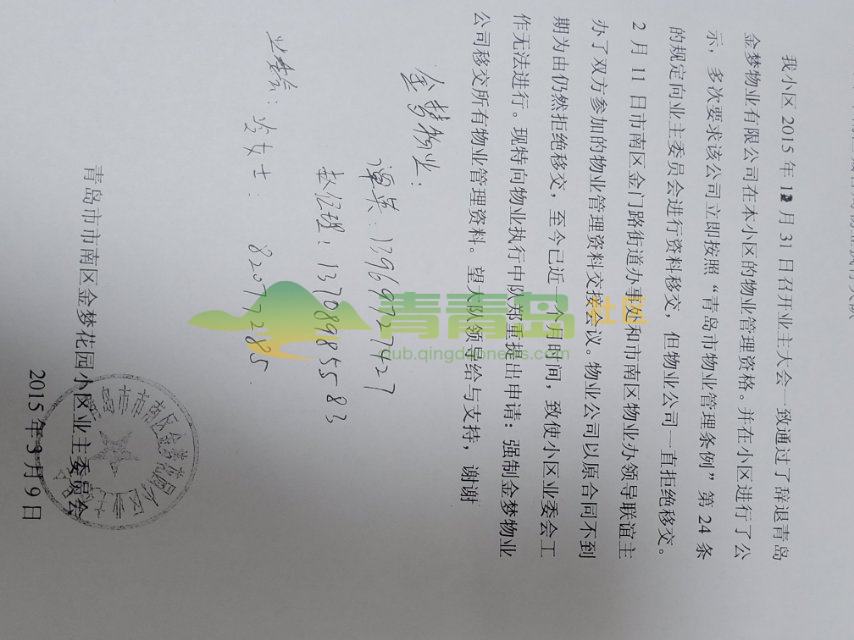 我小区 2015 年 12 月 31 日召开业主大会一致通过了辞退青岛
金梦物业有限公司在本小区的物业管理资格。并在小区进行了公
示，多次要求该公司立即按照“青岛市物业管理条例”第 24 条
的规定向业主委员会进行资料移交，但物业公司一直拒绝移交。
2 月 11 日市南区金门路街道办事处和市南区物业办领导联谊主
办了双方参加的物业管理资料交接会议。物业公司以原合同不到
期为由仍然拒绝移交，至今已近 个月时间，致使小区业委会工
作无法进行。现特向物业执行中队郑重提出申请：强制金梦物业
公司移交所有物业管理资料。望大队领导给与支持，谢谢
金梦物业：
谭英：13969727427
经理：13708985583
业委会： 女士：82077285
青岛市市南区金梦花园小区业主委员会
2015 年 3 月 9 日
青青岛社区
qub.qingdaonews.com